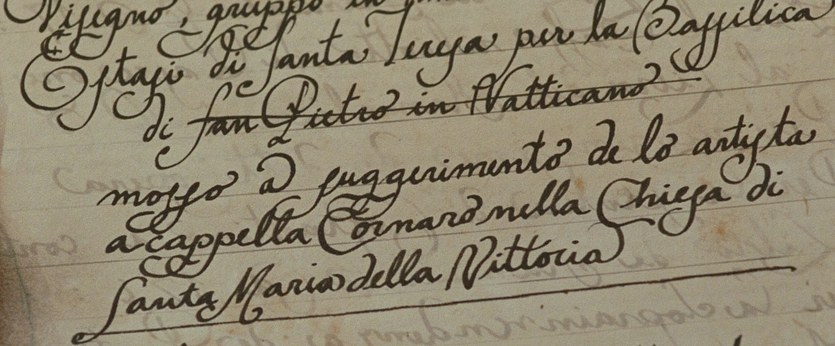 Disegno, gruppo in
Estasi di Santa Teresa per la Bassilica
di San Pietro in Vatticano
mosso a suggerimento de lo artista
a cappella Cornaro nella Chiesa di
Santa Maria della Vittoria